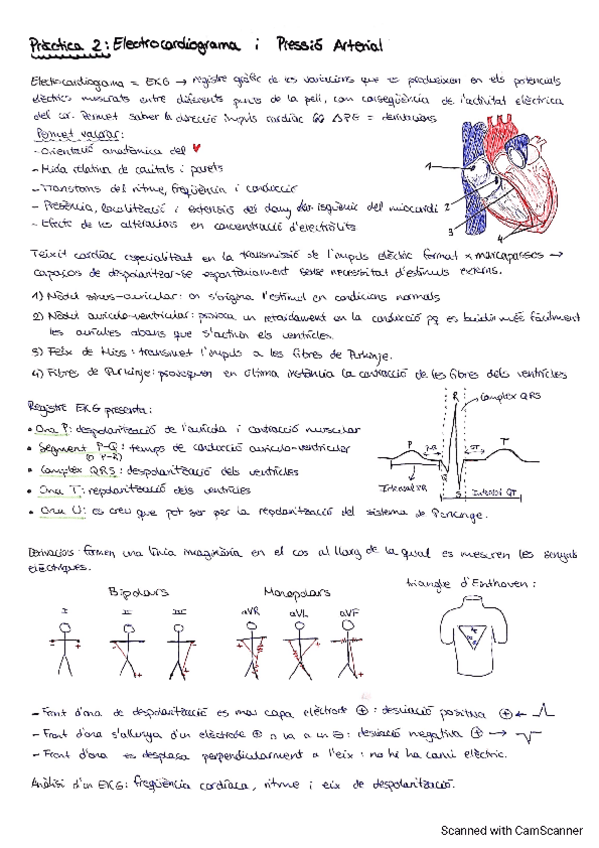 Pràctica 2: Electrocardiograma i Pressió Arterial
Electrocardiograma = EKG → registre gràfic de les variacions que es produeixen en els potencials
elèctrics mesurats entre diferents punts de la pell, com conseqüència de l'activitat elèctrica
del cor. Permet saber la direcció impuls cardíac = derivacions
Permet valorar:
- Orientació anatòmica del ♥
- Mida relativa de cavitats i parets
- Transtorns del ritme, freqüència i conducció
- Presència, localització i extensió del dany isquèmic del miocardi
- Efecte de les alteracions en concentració d'electròlits
1
2
3
4
Teixit cardíac especialitzat en la transmissió de l'impuls elèctric format x marcapassos →
capaços de despolaritzar-se espontàniament sense necessitat d'estímuls externs.
1) Nòdul sinus-auricular: on s'origina l'estímul en condicions normals
2) Nòdul auriculo-ventricular: provoca un retardament en la conducció pq es buidin més fàcilment
les aurícules abans que s'activin els ventricles.
3) Feix de Hiss: transmet l'impuls a les fibres de Purkinje.
4) Fibres de Purkinje: provoquen en última instància la contracció de les fibres dels ventricles
Registre EKG presenta:
• Ona P: despolarització de l'aurícula i contracció muscular
• Segment P-Q: temps de conducció auriculo-ventricular
(o P-R)
• Complex QRS: despolarització dels ventricles
• Ona T: repolarització dels ventricles
• Ona U: es creu que pot ser per la repolarització del sistema de Purkinje.
R
Complex QRS
P
P-R
ST
T
Q
S
Interval PR
Interval QT
Derivacions formen una línia imaginària en el cos al llarg de la qual es mesuren les senyals
elèctriques.
Bipolars
Monopolars
triangle d'Einthoven:
I
II
III
aVR
aVL
aVF
- Front d'ona de despolarització es mou capa elèctrode ⊕: desviació positiva ⊕ ←
- Front d'ona s'allunya d'un elèctrode ⊕ o va a un ⊖: desviació negativa ⊕ →
- Front d'ona es desplaça perpendicularment a l'eix: no hi ha canvi elèctric.
Anàlisi d'un EKG: freqüència cardíaca, ritme i eix de despolarització.
Scanned with CamScanner